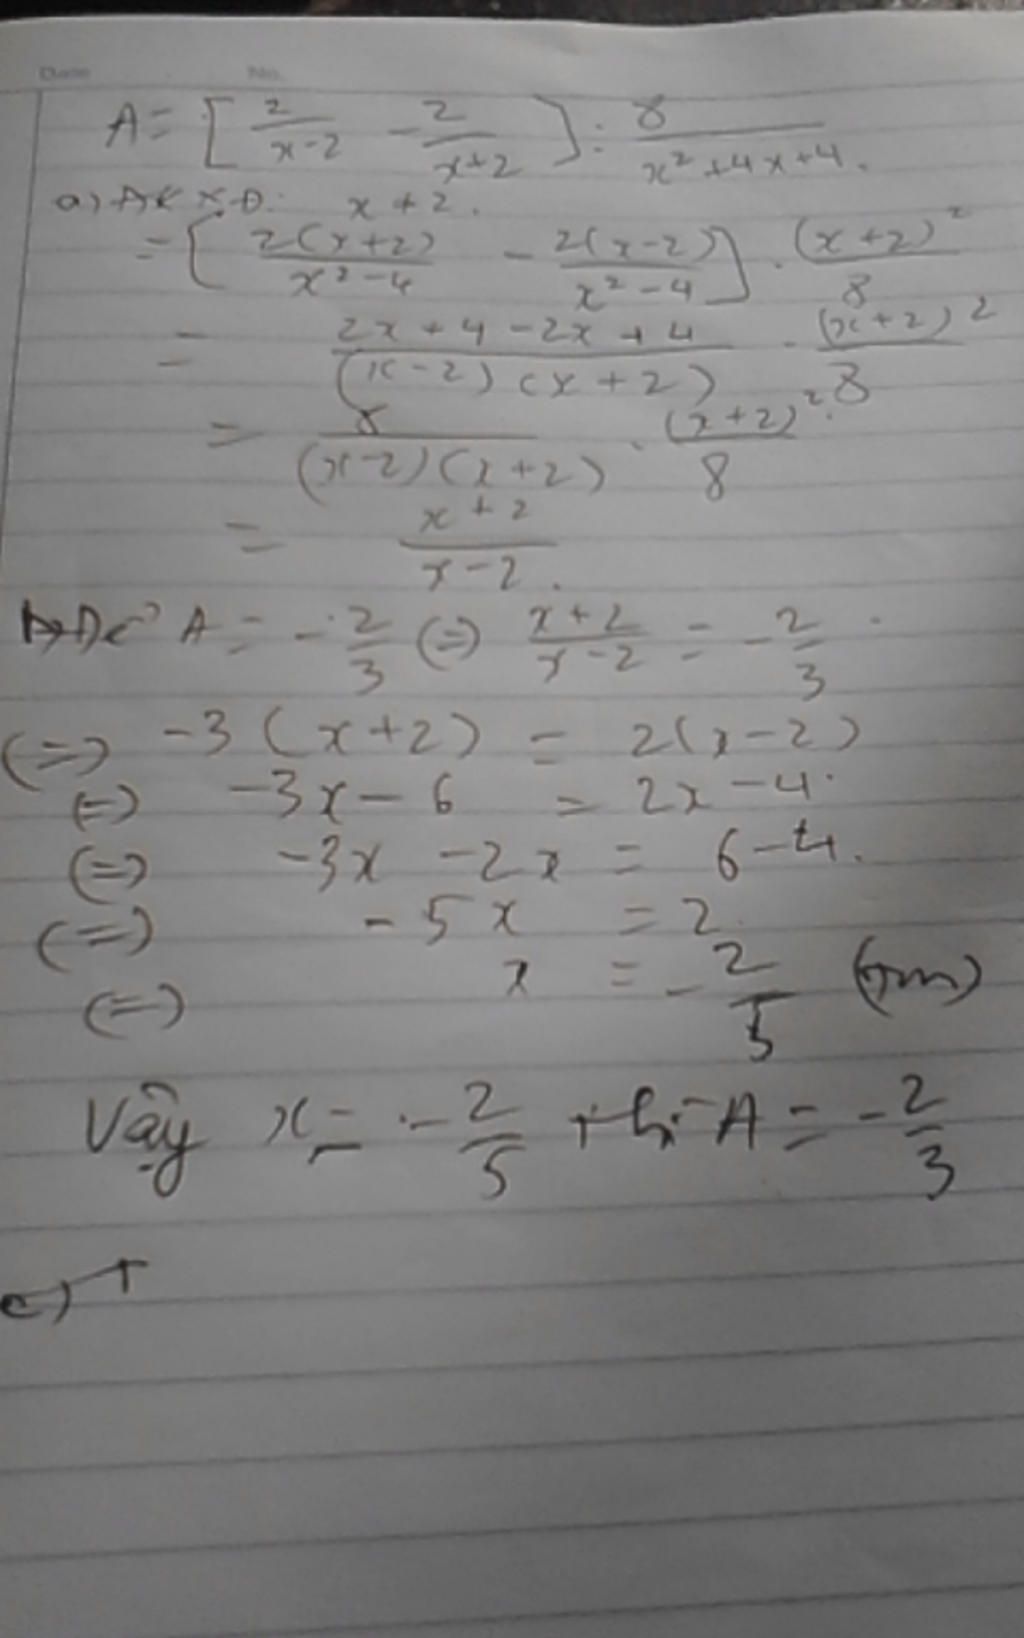 Date No.
A = [ 2/(x-2) - 2/(x+2) ] : 8/(x²+4x+4).
a) ĐKXĐ: x ≠ 2.
= [ 2(x+2)/(x²-4) - 2(x-2)/(x²-4) ] . (x+2)²/8
= (2x+4-2x+4)/((x-2)(x+2)) . (x+2)²/8
= 8/((x-2)(x+2)) . (x+2)²/8
= (x+2)/(x-2).
Để A = -2/3 (=) (x+2)/(x-2) = -2/3
(=) -3(x+2) = 2(x-2)
(=) -3x-6 = 2x-4
(=) -3x-2x = 6-4.
(=) -5x = 2
(=) x = -2/5 (tm)
Vậy x = -2/5 thì A = -2/3
c) T